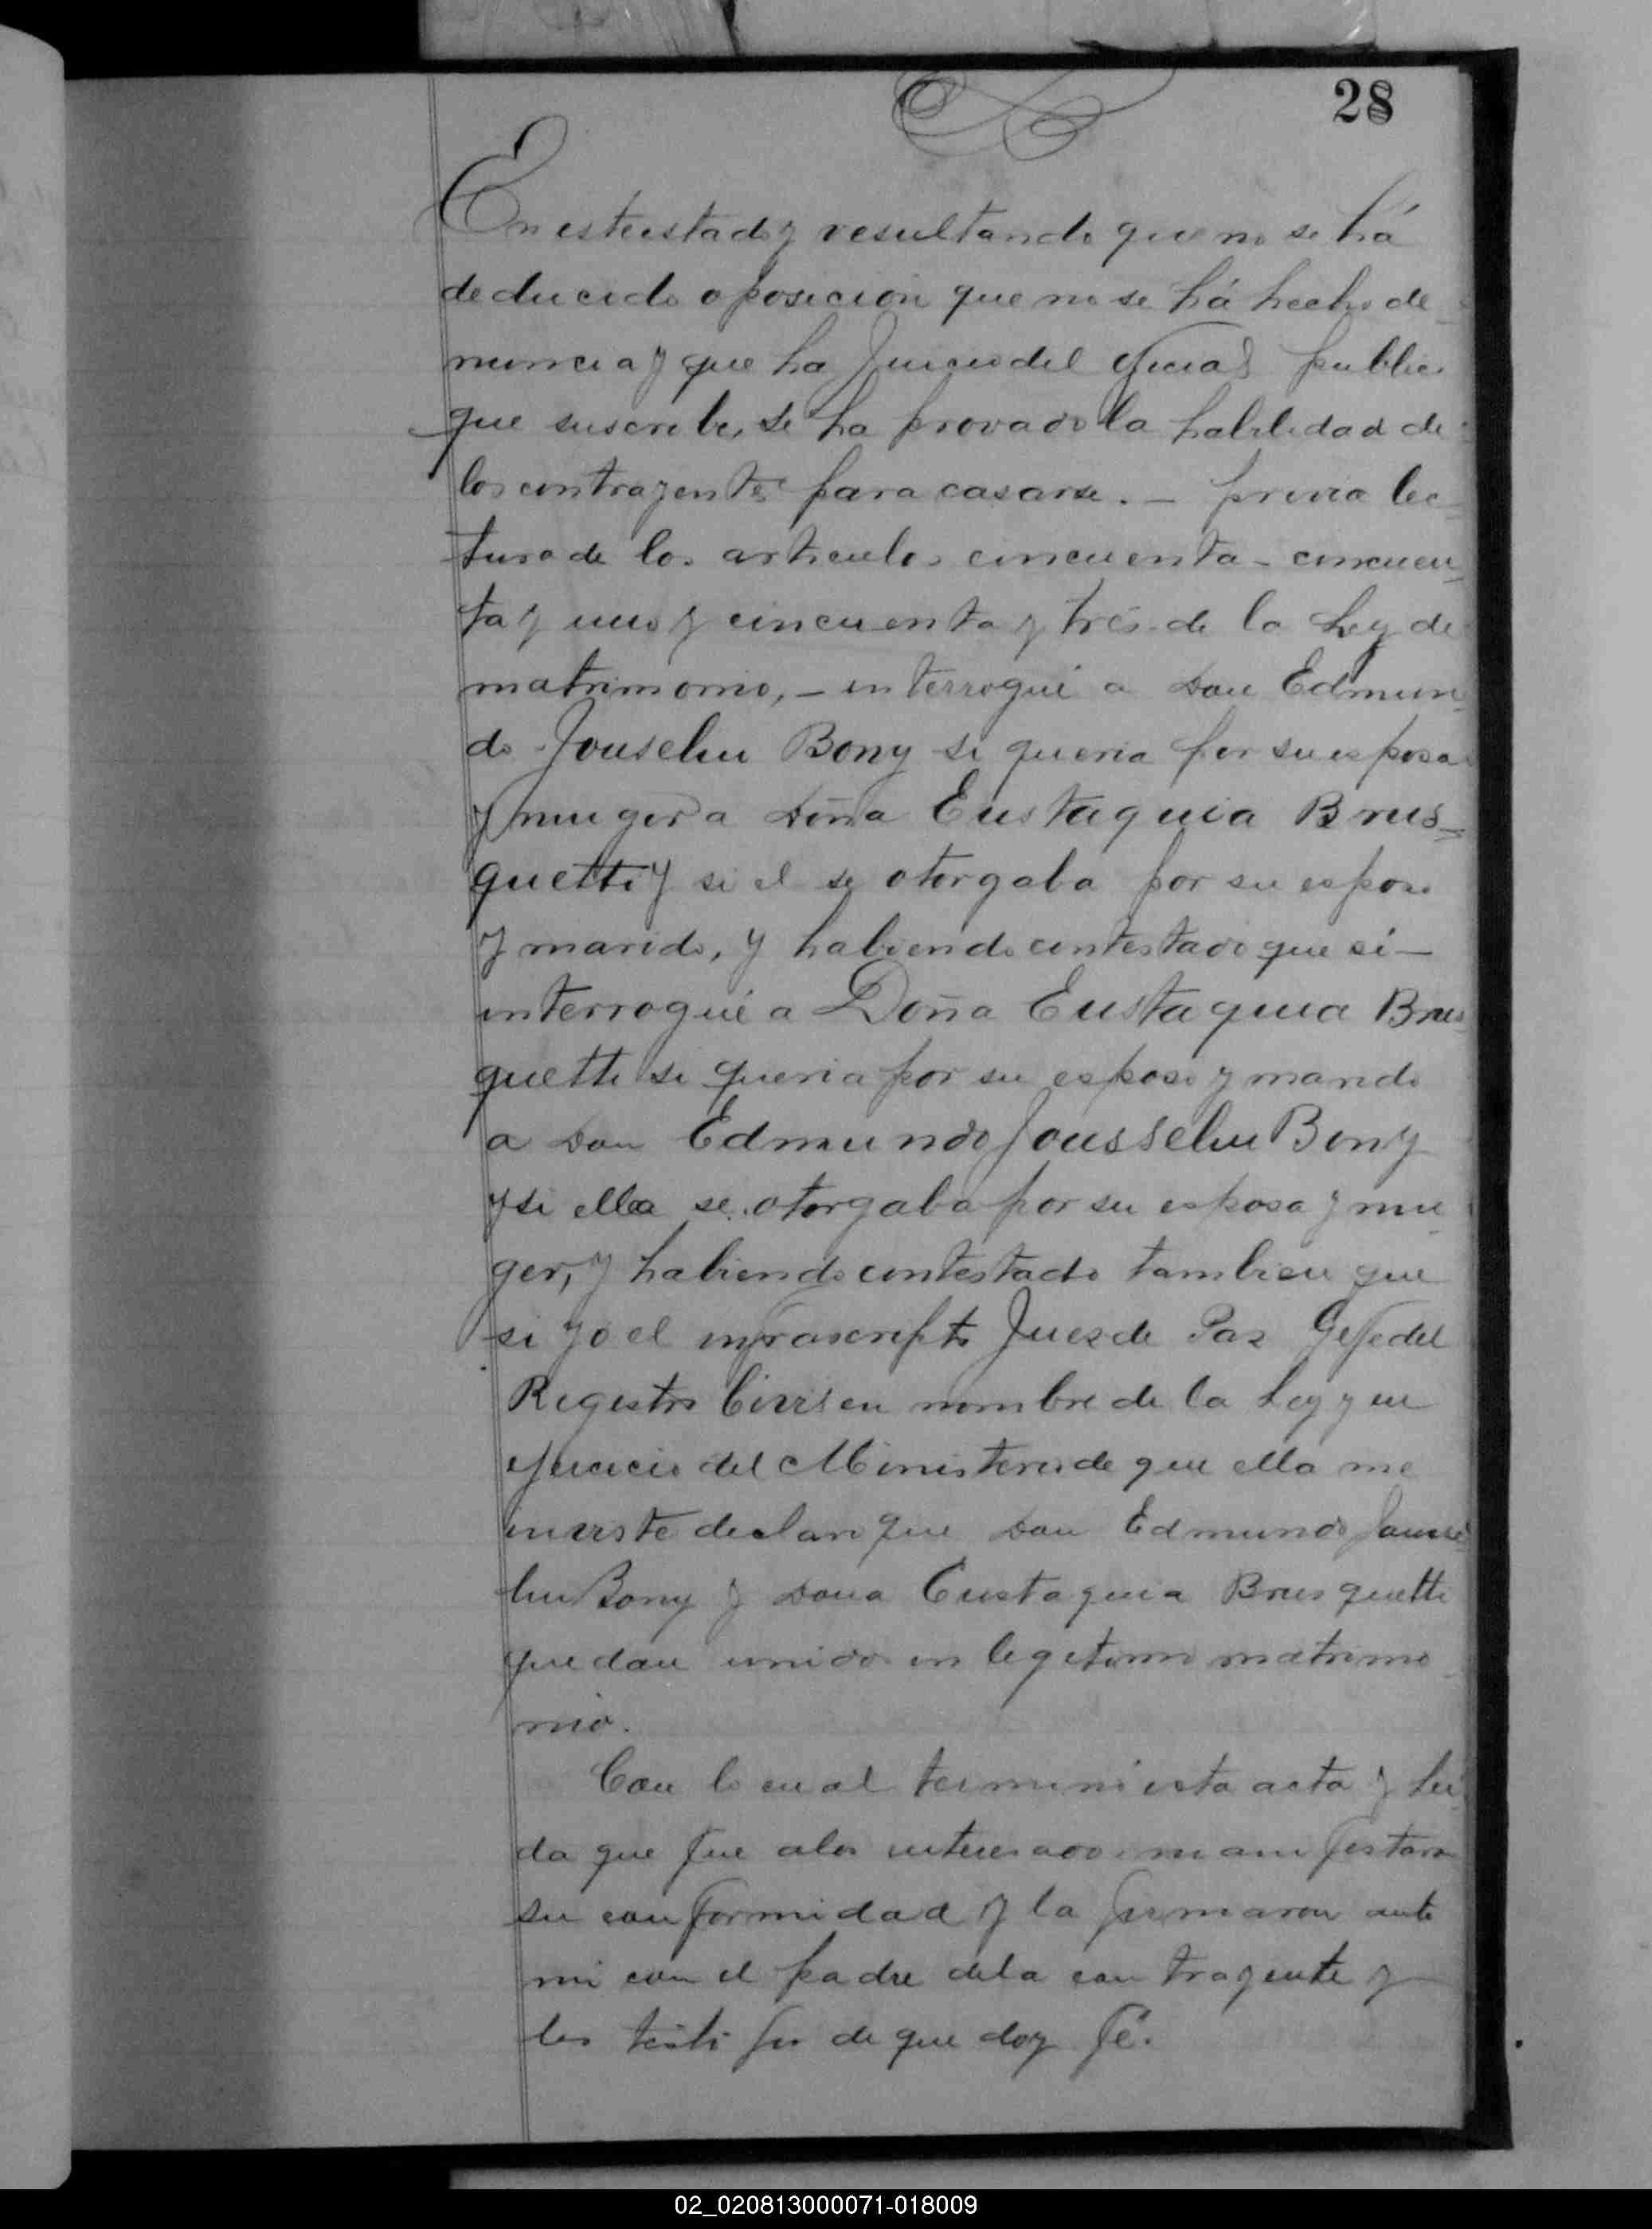 28
En este estado y resultando que no se há
deducido oposicion que no se há hecho de-
nuncia y que ha Juicio del oficial public
que suscribe, se ha provado la habilidad de
los contrayentes para casarse. - previa lec-
tura de los articulos cincuenta - cincuen-
ta y uno y cincuenta y trés de la Ley de
matrimonio, - interrogué a Don Edmun-
do Jouselin Bony si queria por su esposa
y muger a Doña Eustaquia Brus-
quetti y si el se otorgaba por su esposo
y marido, y habiendo contestado que sí -
interrogué a Doña Eustaquia Brus-
quetti si queria por su esposo y marido
a Don Edmundo Jousselin Bony
y si ella se otorgaba por su esposa y mu-
ger, y habiendo contestado tambien que
si yo el infrascripto Juez de Paz Gefe del
Registro Civil en nombre de la Ley y en
ejercicio del Ministerio de que ella me
inviste declaro que Don Edmundo Jousse
lin Bony y Dona Eustaquia Brusquetti
quedan unidos en legitimo matrimo-
nio.
Con lo cual terminó esta acta y lei-
da que fue a los interesados manifestaron
su conformidad y la firmaron ante
mi con el padre dela contrayente y
los de que doy fé.
02_020813000071-018009